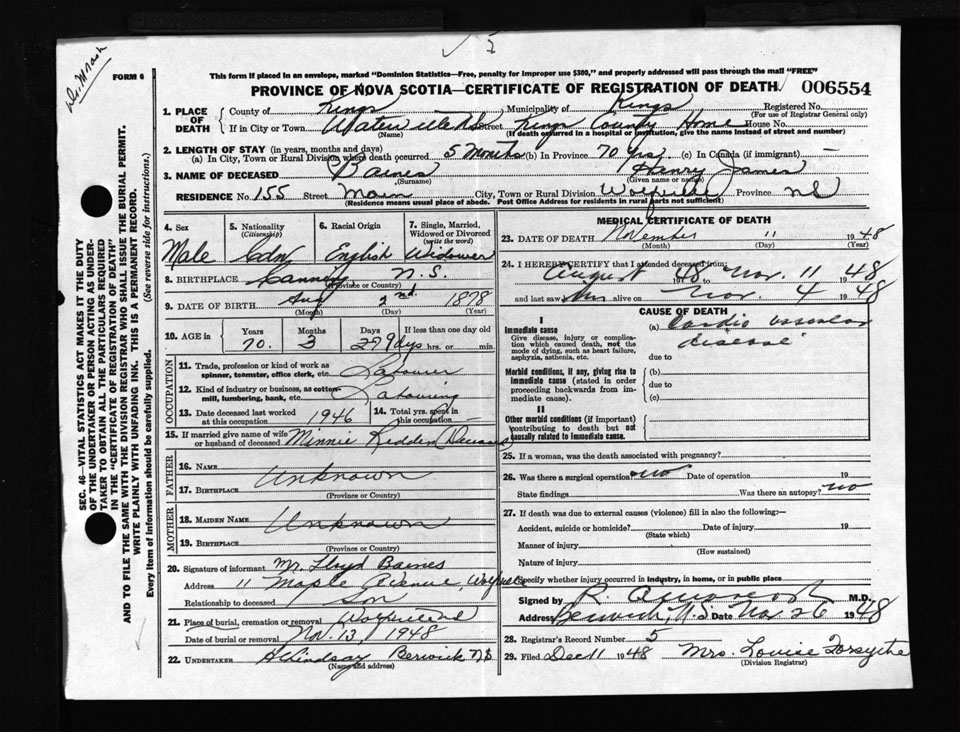 Dr. Mrash
✓ 5
FORM 6
This form if placed in an envelope, marked "Dominion Statistics—Free, penalty for improper use $300," and properly addressed will pass through the mail "FREE"
PROVINCE OF NOVA SCOTIA—CERTIFICATE OF REGISTRATION OF DEATH 006554
1. PLACE OF DEATH County of Kings Municipality of Kings Registered No.
(For use of Registrar General only)
If in City or Town Waterville N.S. Street Kings County Home House No.
(Name) (If death occurred in a hospital or institution, give the name instead of street and number)
2. LENGTH OF STAY (in years, months and days)
(a) In City, Town or Rural Division where death occurred 5 Months (b) In Province 70 yrs. (c) In Canada (if immigrant) —
3. NAME OF DECEASED Baines Henry James
(Surname) (Given name or names)
RESIDENCE No. 155 Street Main City, Town or Rural Division Wolfville Province NS
(Residence means usual place of abode. Post Office Address for residents in rural parts not sufficient)
4. Sex Male
5. Nationality (Citizenship) Cdn
6. Racial Origin English
7. Single, Married, Widowed or Divorced (write the word) Widower
8. BIRTHPLACE Canning N.S.
(Province or Country)
9. DATE OF BIRTH Aug 2nd. 1878
(Month) (Day) (Year)
10. AGE in Years 70. Months 3 Days 9 dys If less than one day old hrs. or min.
OCCUPATION
11. Trade, profession or kind of work as spinner, teamster, office clerk, etc. Labourer
12. Kind of industry or business, as cotton-mill, lumbering, bank, etc. Labouring
13. Date deceased last worked at this occupation 1946
14. Total yrs. spent in this occupation
15. If married give name of wife or husband of deceased Minnie Redden (Deceased)
FATHER
16. NAME
Unknown
17. BIRTHPLACE
(Province or Country)
MOTHER
18. MAIDEN NAME Unknown
19. BIRTHPLACE
(Province or Country)
20. Signature of informant Mr. Lloyd Baines
Address 11 Maple Avenue, Wolfville
Relationship to deceased Son
21. Place of burial, cremation or removal Wolfville
Date of burial or removal Nov. 13, 1948
22. UNDERTAKER Lindsay Berwick N.S.
(Name and address)
MEDICAL CERTIFICATE OF DEATH
23. DATE OF DEATH November 11 1948
(Month) (Day) (Year)
24. I HEREBY CERTIFY that I attended deceased from:
August 1948 to Nov. 11 1948
and last saw him alive on Nov. 4 1948
CAUSE OF DEATH
I
Immediate cause
Give disease, injury or complication which caused death, not the mode of dying, such as heart failure, asphyxia, asthenia, etc.
(a) Cardio vascular disease
due to
Morbid conditions, if any, giving rise to immediate cause (stated in order proceeding backwards from immediate cause).
(b)
due to
(c)
II
Other morbid conditions (if important) contributing to death but not causally related to immediate cause.
25. If a woman, was the death associated with pregnancy?
26. Was there a surgical operation? no Date of operation 19
State findings Was there an autopsy? no
27. If death was due to external causes (violence) fill in also the following:—
Accident, suicide or homicide? Date of injury 19
(State which)
Manner of injury
(How sustained)
Nature of injury
Specify whether injury occurred in industry, in home, or in public place
Signed by R. M.D.
Berwick, N.S. Date Nov. 26 1948
28. Registrar's Record Number 5
29. Filed Dec 11 1948 Mrs. Louise Forsythe
(Division Registrar)
SEC. 46—VITAL STATISTICS ACT MAKES IT THE DUTY
OF THE UNDERTAKER OR PERSON ACTING AS UNDER-
TAKER TO OBTAIN ALL THE PARTICULARS REQUIRED
IN THE "CERTIFICATE OF REGISTRATION OF DEATH"
AND TO FILE THE SAME WITH THE DIVISION REGISTRAR WHO SHALL ISSUE THE BURIAL PERMIT.
WRITE PLAINLY WITH UNFADING INK. THIS IS A PERMANENT RECORD.
Every item of information should be carefully supplied. (See reverse side for instructions.)